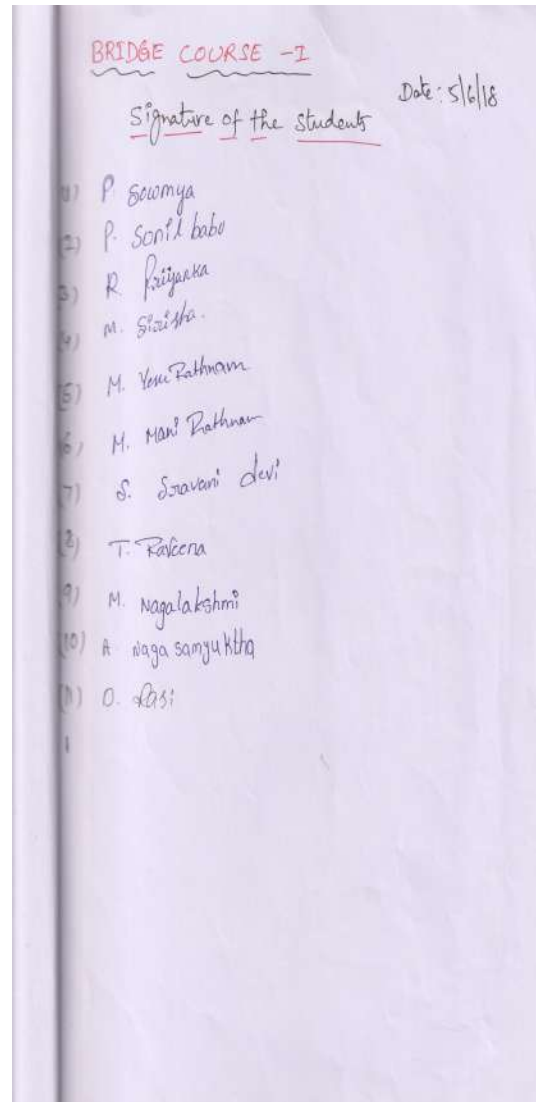 BRIDGE COURSE -I
Date: 5/6/18
Signature of the students
(1) P. Sowmya
(2) P. Sonil babu
(3) R. Priyanka
(4) M. Sirisha.
(5) M. Yesu Rathnam
(6) M. Mani Rathnam
(7) S. Sravani devi
(8) T. Raveena
(9) M. Nagalakshmi
(10) A Naga samyuktha
(11) O. Rasi